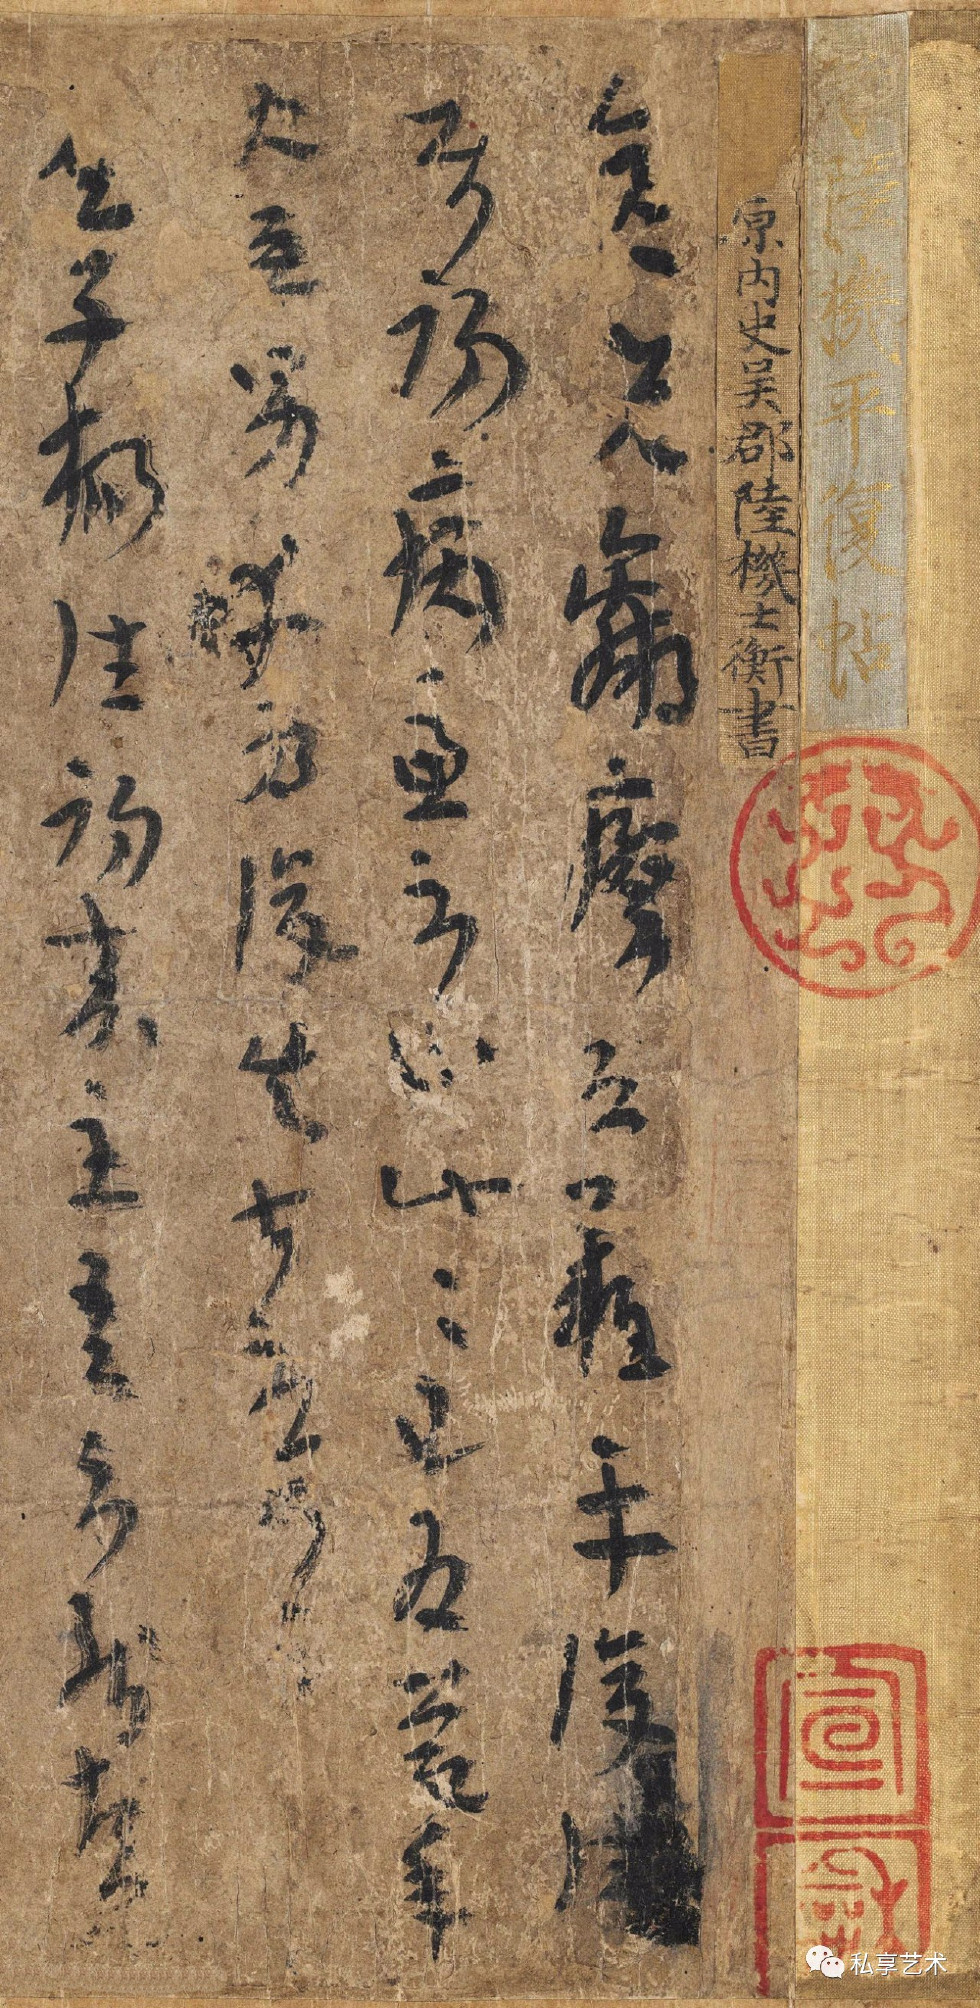 晋陸機平復帖
原内史吴郡陸機士衡書
彦先羸瘵恐難平復往
屬初病慮不止此此已為慶承
使唯男幸為復失前憂耳
子楊往初來主吾不能盡
宣和
私享艺术